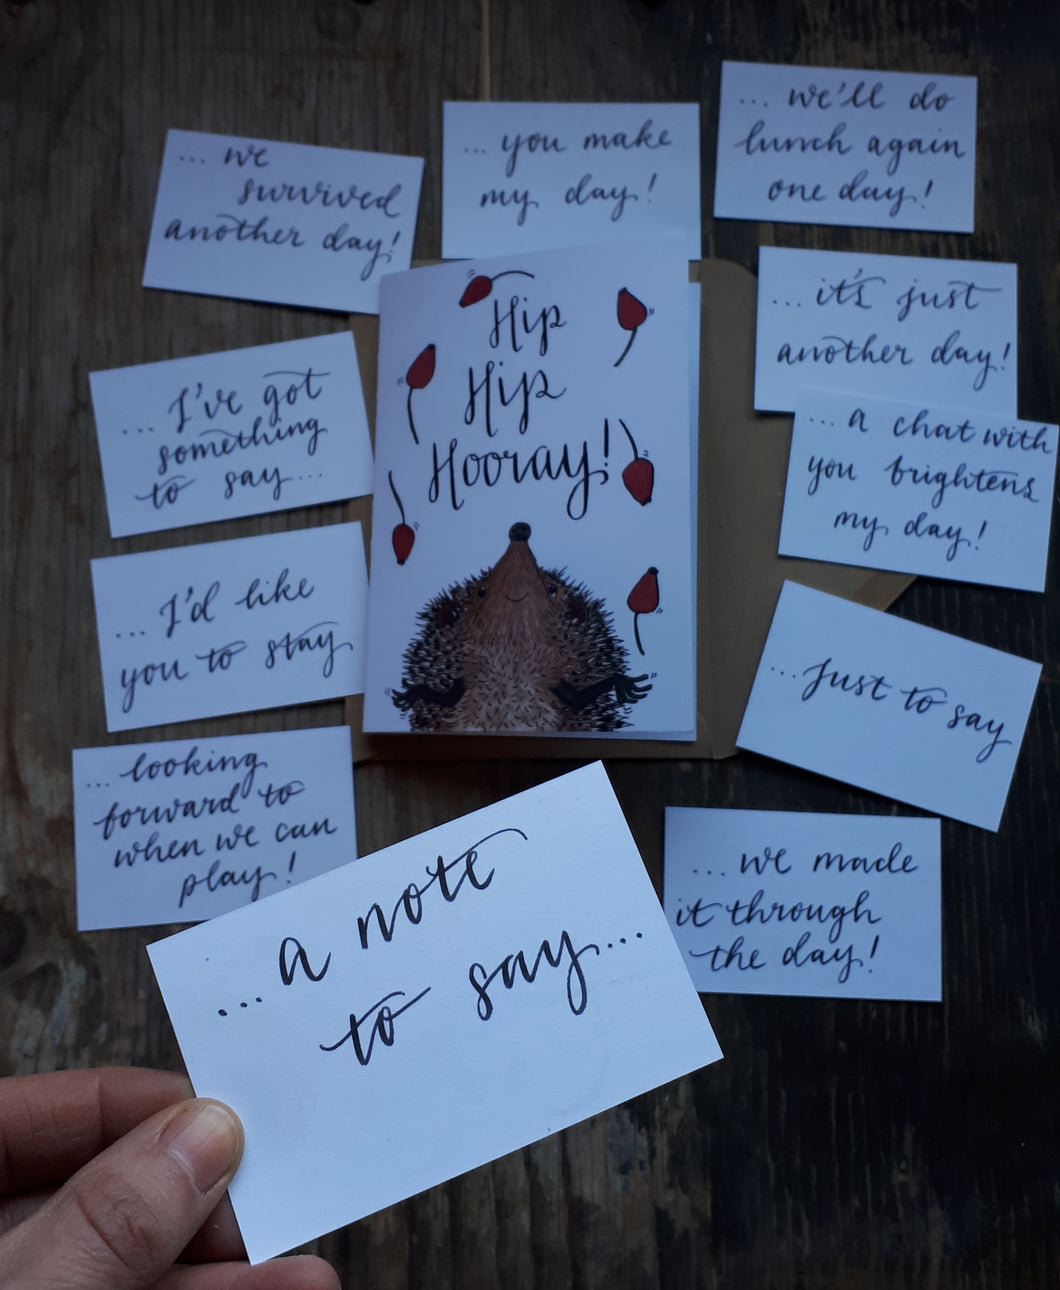 ... we
survived
another day!
... you make
my day!
... we'll do
lunch again
one day!
Hip
Hip
Hooray!
... it's just
another day!
... I've got
something
to say...
... a chat with
you brightens
my day!
... I'd like
you to stay
... Just to say
... looking
forward to
when we can
play!
... we made
it through
the day!
... a note
to say...